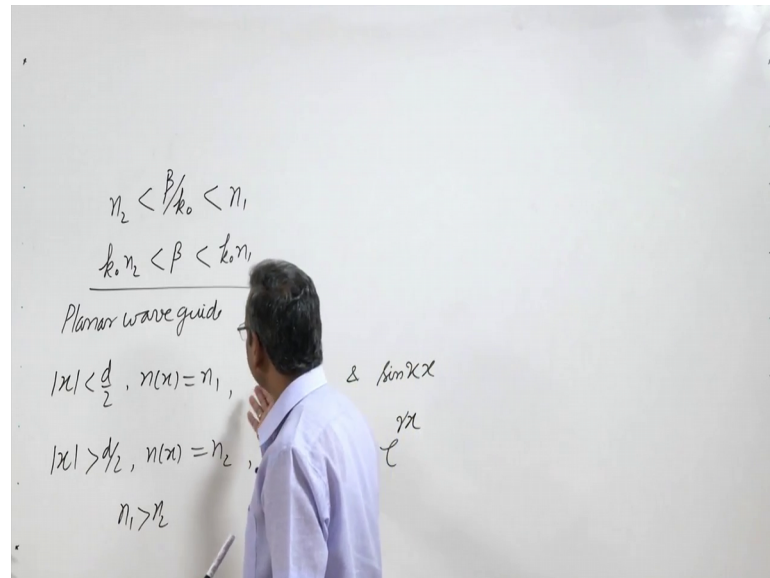 n₂ < β/k₀ < n₁
k₀n₂ < β < k₀n₁
Planar waveguide
|x| < d/2 , n(x) = n₁ , & sin κx
|x| > d/2 , n(x) = n₂ , e^γx
n₁ > n₂